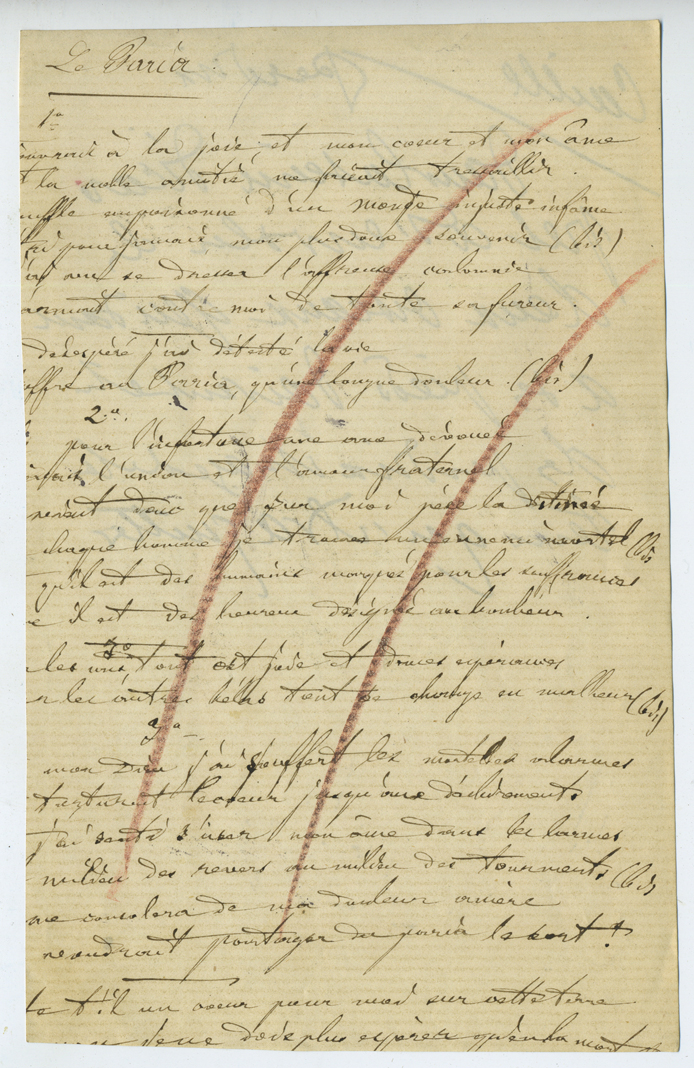 Le Paria
1º
ouvrait à la joie et mon cœur et mon âme
t la noble amitié me faisait tressaillir.
ouffle empoisonné d'un monde injuste infâme
tri pour jamais mon plus doux souvenir (bis)
se dresser l'affreuse calomnie
armant contre moi de toute sa fureur.
désespéré j'ai détesté la vie
offre au Paria, qu'une longue douleur. (bis)
2º.
pour l'infortune une ame dévouée
l'union et l'amour fraternel
donc que sur moi pèse la
chaque homme je trouve un ennemi mortel (bis
qu'il est des humains marqués pour les souffrances
e il est des heureux désignés au bonheur.
3º
les uns, tout est joie et douces espérances
les autres hélas tout se change en malheur (bis)
3º
mon Dieu j'ai souffert les mortelles alarmes
torturent le cœur jusqu'au déchirement
j'ai senti s'user mon âme dans les larmes
milieu des revers au milieu des tourments (bis
me consolera de ma douleur amère
voudrait partager du paria le sort !
te t-il un cœur pour moi sur cette terre
je ne dois plus espérer qu'en la mort